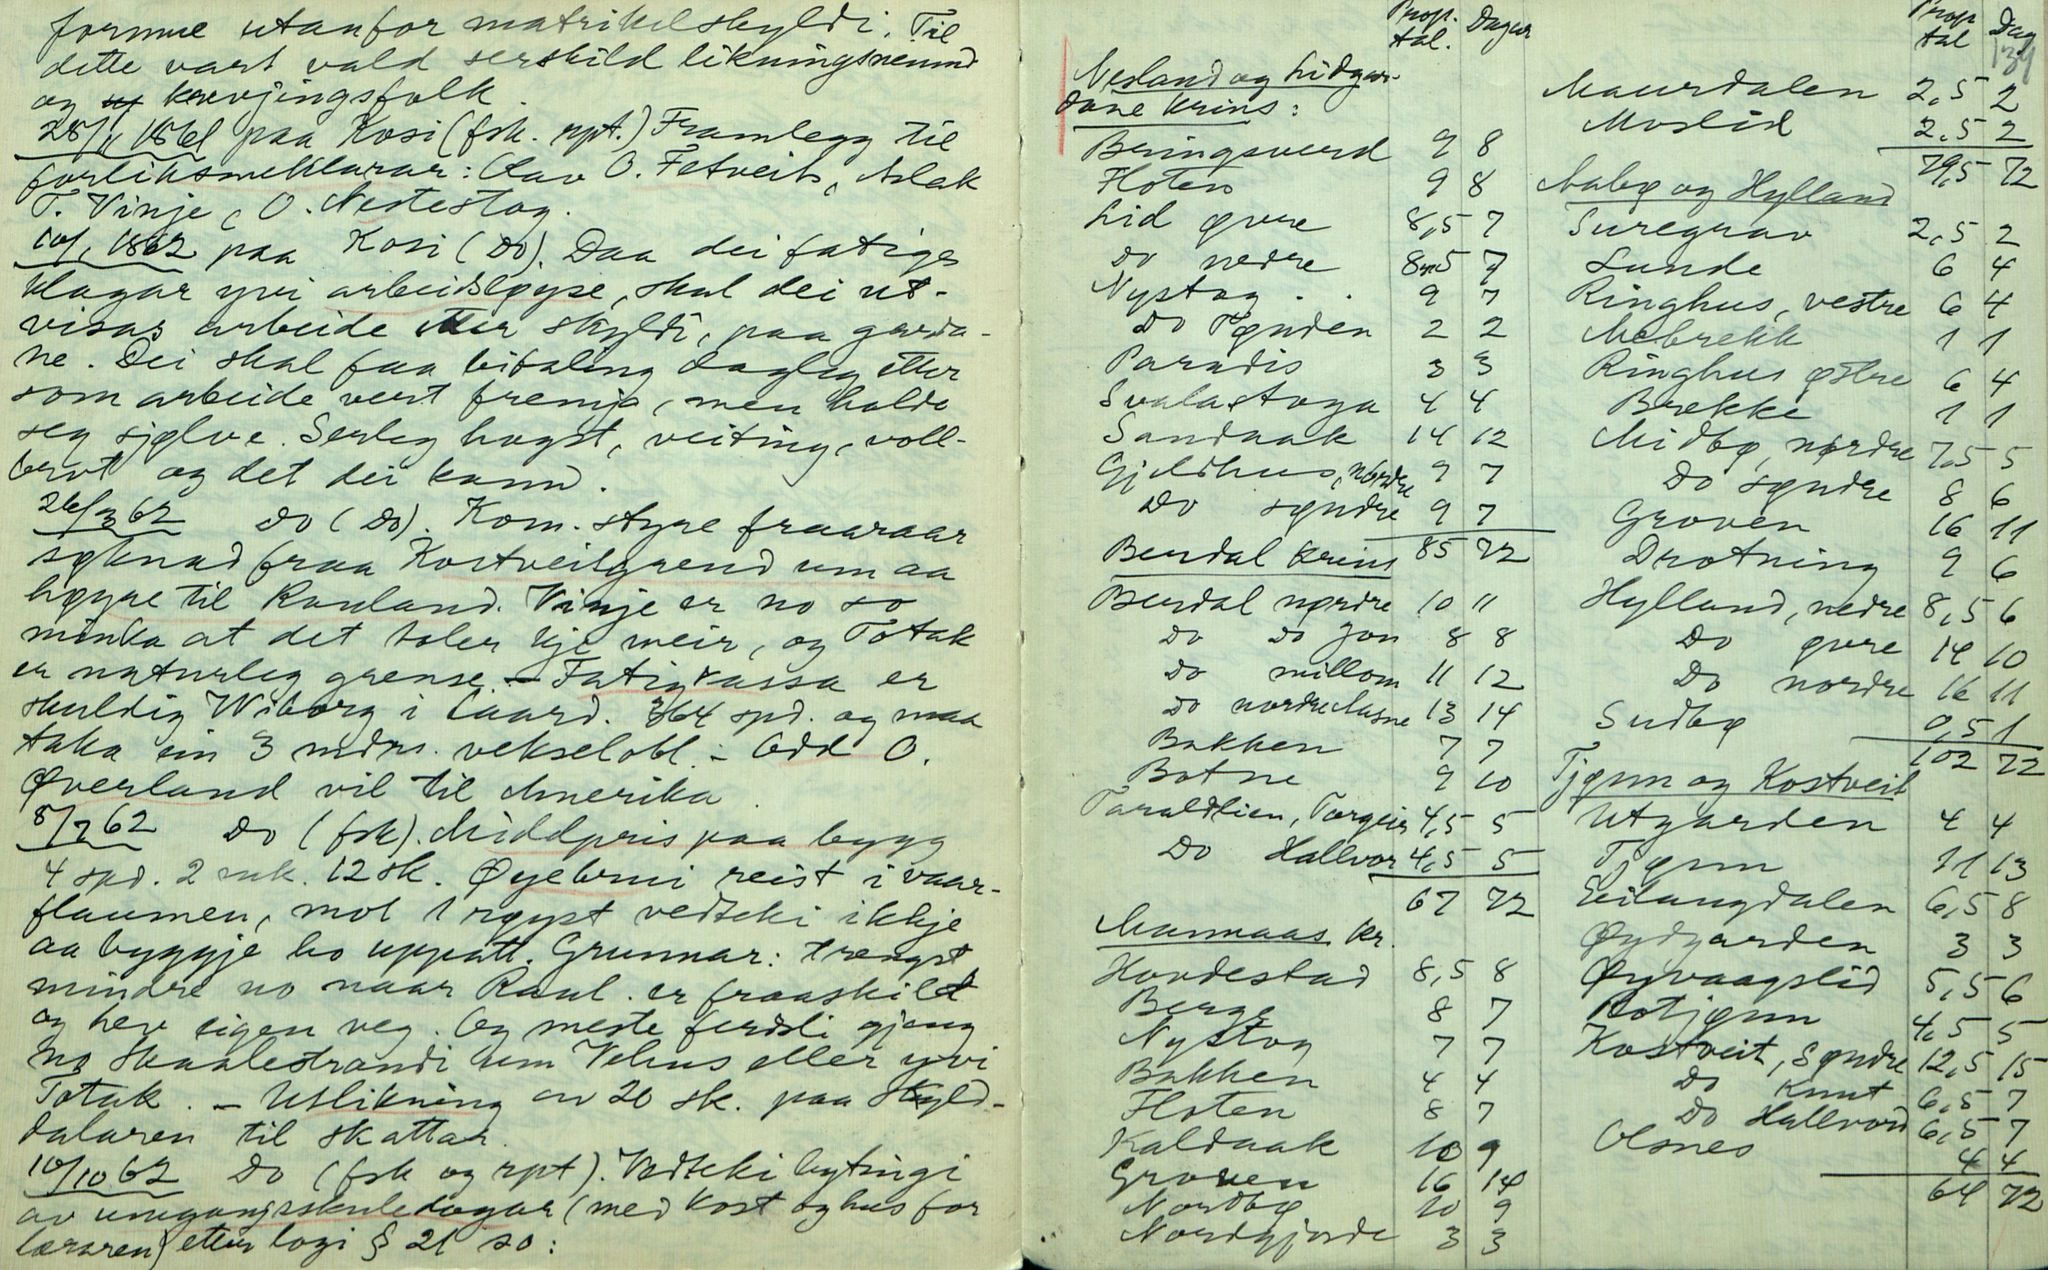 formue utanfor matrikelskyldi. Til
dette vart vald serskild likningsnemnd
og krevjingsfolk.
28/11 1861 paa Kosi (fsk. rpt.) Framlegg til
forliksmeklarar: Olav O. Fetveit, Aslak
T. Vinje, O. Nestestog.
10/1 1862 paa Kosi (Do). Daa dei fatige
klagar yvi arbeidsløyse, skal dei ut-
visas arbeide etter skyldi, paa garda-
ne. Dei skal faa bitaling dagleg etter
som arbeide vert fremja, men halde
seg sjølve. Serleg hogst, veiting, voll-
brot og det dei kann.
26/3 62 Do (Do). Kom. styre fraaraar
søknad fraa Kostveitgrend um aa
høyre til Rauland. Vinje er no so
minka at det toler kje meir, og Totak
er naturleg grense. – Fatigkassa er
skuldig Wiborg i Laard. 364 spd. og maa
taka ein 3 mdrs. vekselobl. – Odd O.
Øverland vil til Amerika.
8/7 62 Do (fsk). Middpris paa bygg
4 spd. 2 mk. 12 sk. Øyebrui reist i vaar-
flaumen, mot 1 røyst vedteki ikkje
aa byggje ho uppatt. Grunnar: trengst
mindre no naar Raul. er fraaskild
og hev eigen veg. Og meste ferdsli gjeng
no Skaalestrandi um Vehus eller yvi
Totak. – Utlikning av 20 sk. paa Skyld-
dalaren til skattar.
10/10 62 Do (fsk og rpt). Vedteki bytingi
av umgangsskuledagar (med kost og hus for
læraren) etter logi § 21 so:
Prop. tal. Dagar
Nesland og Lidgar-
dane krins:
Beringsverd 9 8
Floten 9 8
Lid øvre 8,5 7
Do nedre 8,5 7
Nystog . . 9 7
Do Tynden 2 2
Paradis 3 3
Svalastoga 4 4
Sandaak 14 12
Gjeldhus, nørdre 9 7
Do søndre 9 7
85 72
Berdal krins
Berdal nørdre 10 11
Do Do Jon 8 8
Do millom 11 12
Do nordre Aasne 13 14
Bakken 7 7
Botne 9 10
Taraldlien, Torgeir 4,5 5
Do Hallvor 4,5 5
67 72
Mannaas kr.
Hovdestad 8,5 8
Berge 8 7
Nystog 7 7
Bakken 4 4
Floten 8 7
Kaldaak 10 9
Groven 16 14
Nordbø 10 9
Nordgjorde 3 3
Prop tal Dag
139
Maurdalen 2,5 2
Moslid 2,5 2
79,5 72
Aabø og Hylland
Suregrav 2,5 2
Lunde 6 4
Ringhus, vestre 6 4
Mebrekk 1 1
Ringhus østre 6 4
Brekke 1 1
Midbø, nørdre 7,5 5
Do søndre 8 6
Groven 16 11
Drotning 9 6
Hylland, nedre 8,5 6
Do øvre 14 10
Do nordre 16 11
Sudbø 0,5 1
102 72
Tjønn og Kostveit
Utgarden 4 4
Tjønn 11 13
Eilangdalen 6,5 8
Øydgarden 3 3
Øyvaagslid 5,5 6
Rotjønn 4,5 5
Kostveit, Søndre 12,5 15
Do Knut 6,5 7
Do Hallvord 6,5 7
Osnes 4 4
64 72